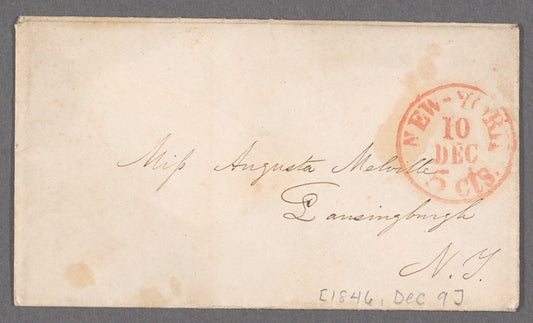 NEW-YORK
10
DEC
5 cts.
Miss Augusta Melville
Lansingburgh
N.Y.
[1846, Dec 9]